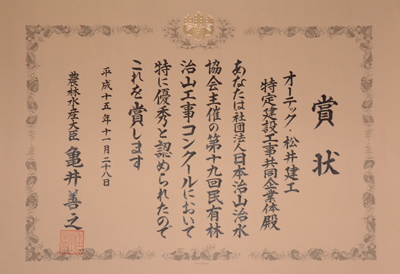 賞状
オーテック・松井建工
特定建設工事共同企業体殿
あなたは社団法人日本治山治水
協会主催の第十九回民有林
治山工事コンクールにおいて
特に優秀と認められたので
これを賞します
平成十五年十一月二八日
農林水産大臣 亀井善之